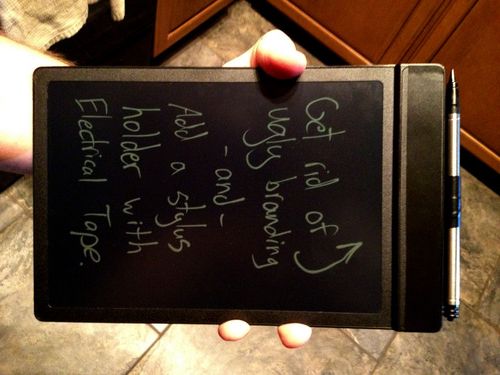 Get rid of
ugly branding
- and -
Add a stylus
holder with
Electrical Tape.